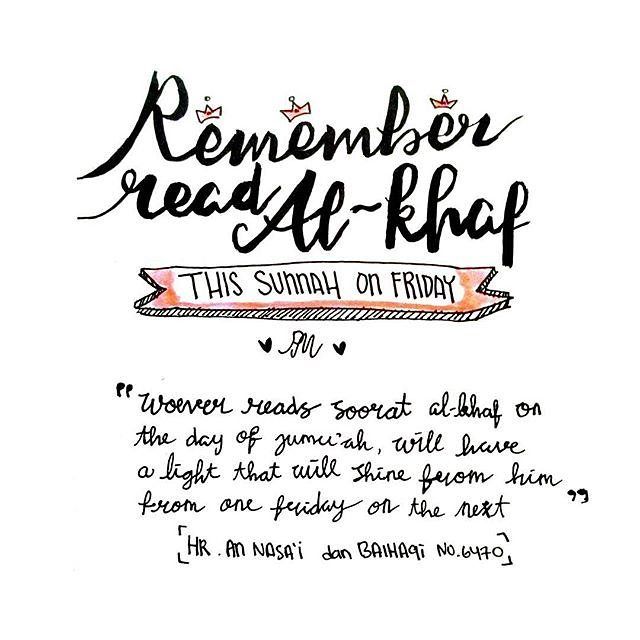 Remember
read Al-khaf
THIS SUNNAH ON FRIDAY
"Woever reads soorat al-khaf on
the day of jumu'ah, will have
a light that will shine from him
from one friday on the next"
[HR. AN NASA'i dan BAIHAQi NO.6470]